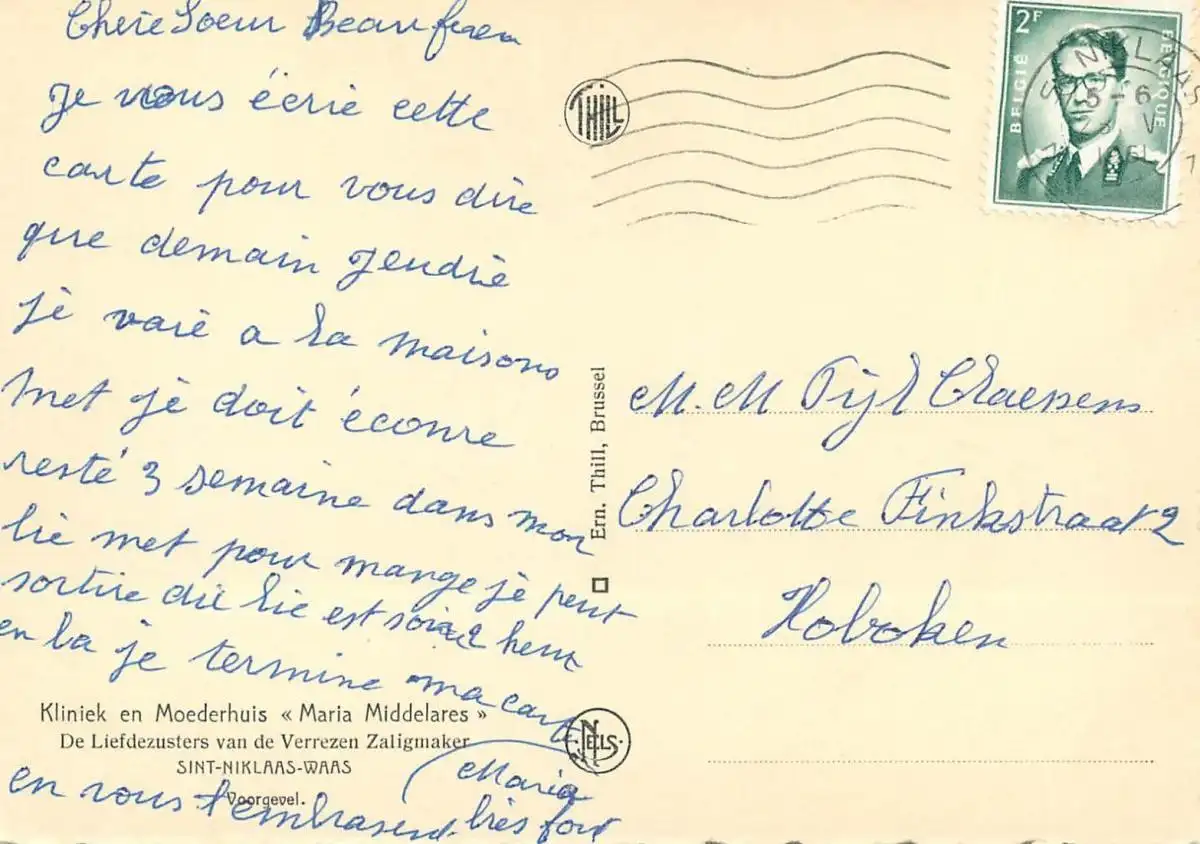 Chere Soeur Beaufrere
Je vous écrie cette
carte pour vous dire
que demain Jeudie
jé vaié a la maisons
met jé doit éconre
resté 3 semaine dans mon
lie met pour mange jé peut
sortire du lie est soir 2 heur
en la je termine ma cart
Kliniek en Moederhuis « Maria Middelares »
De Liefdezusters van de Verrezen Zaligmaker
SINT-NIKLAAS-WAAS
Voorgevel.
en vous t'embrasend très fort
Maria
THILL
Ern. Thill, Brussel
NELS
2F
BELGIË
BELGIQUE
NIKLAAS
5-6
V
M.M Tijl Claessens
Charlotte Finkstraat 2
Hoboken